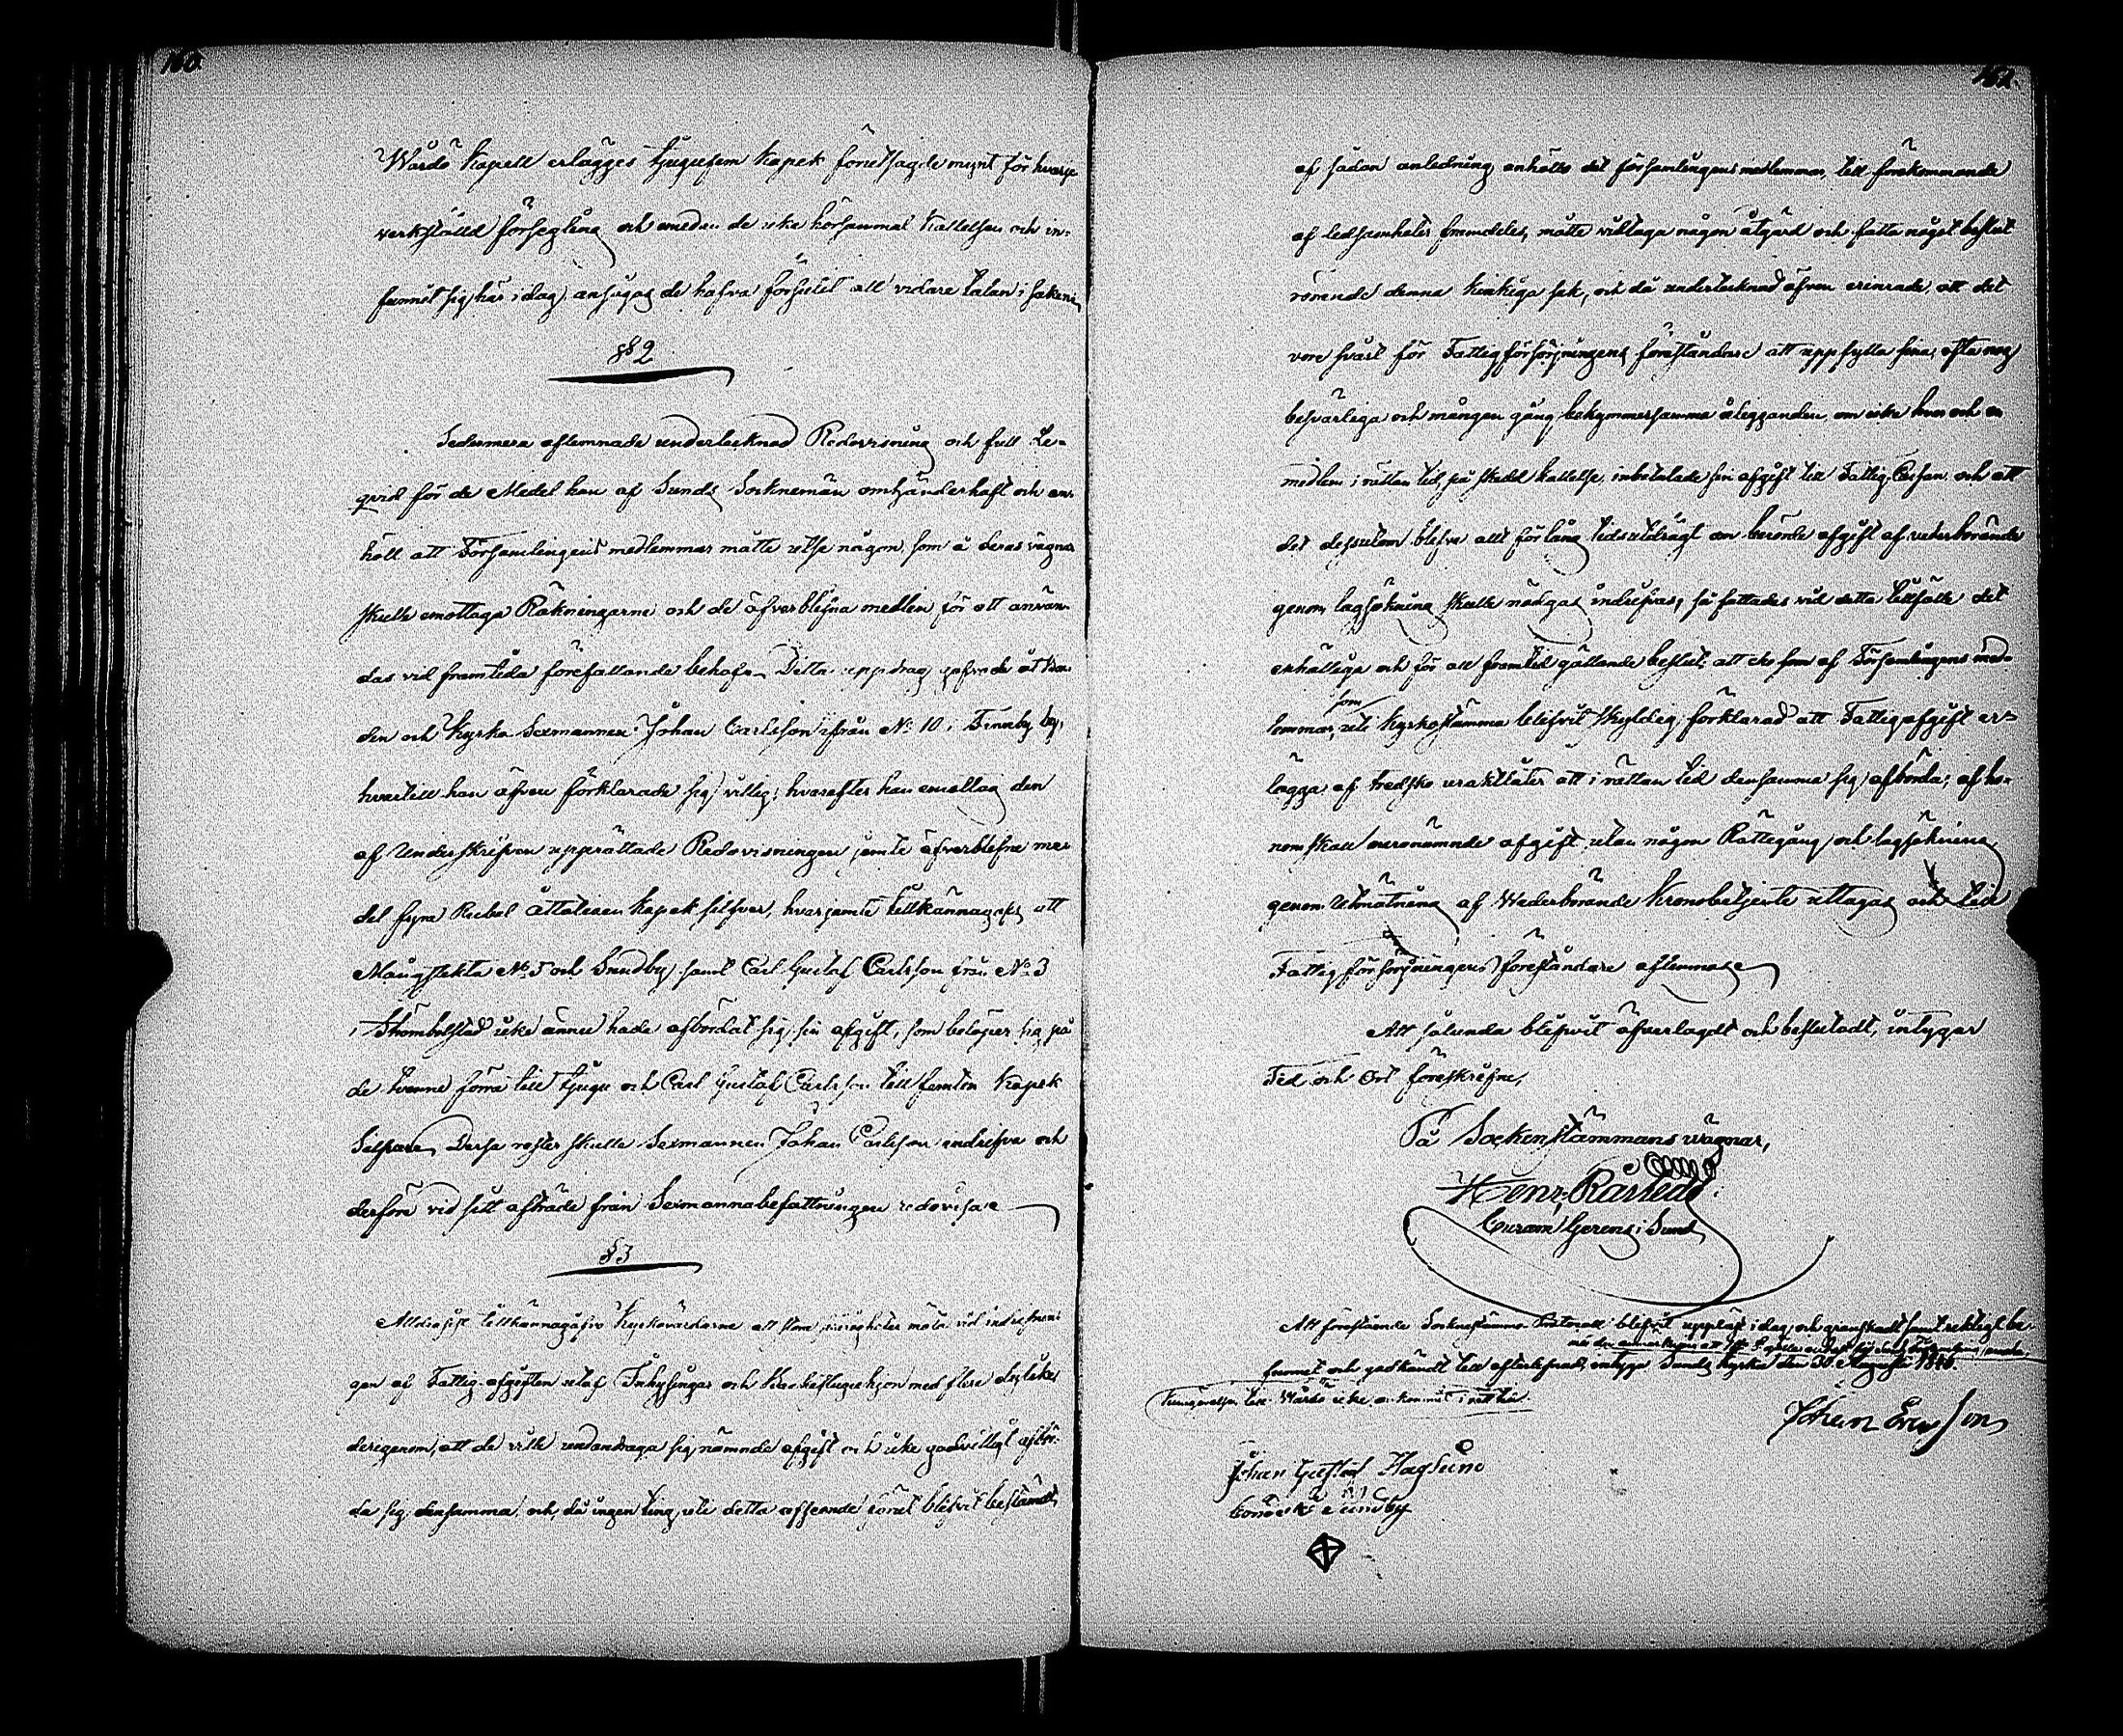 160.
Wårdö Kapell erlägges tjugufem Kopek förutsagde mynt för hvarje
verkställd försegling och emedan de icke hörsammat Kallelsen och in-
funnit sig här i dag, anseqas de hafva förlustat all vidare talan i saken.
§§ 2
Sedermera aflemnade undertecknad Redovisning och full Le-
qvid för de Medel han af Sunds Socknemän omhänderhaft och an-
höll att Församlingens medlemmar måtte utse någon, som å deras vägnar
skulle emottaga Räkningarne och de öfverblefna medlen för att använ-
das vid framtida förefallande behof. Detta uppdrag gafs de åt
den och Kyrko Sexmannen Johan Carlsson ifrån No 10 i Finnby by,
hvartill han äfven förklarade sig villig; hvarefter han emottog den
af Underskrifven upprättade Redovisningen jemte öfverblefne me-
del fyra Rubel åttatiosex Kopek silfver, hvarjemte tillkännagafs att
Mångstekta No 5 och Sundby, samt Carl Gustaf Carlsson från No 3
i Strömbolstad icke ännu hade afbördat sig sin afgift, som belöper sig på
de tvenne förra till tjugu och Carl Gustaf Carlsson till femton Kopek
Silfver. Dessa rester skulle Sexmannen Johan Carlsson indrifva och
derföre vid sitt afträde från Sexmannabefattningen redovisa.
§ 3
Alldrasist tillkännagåfvo Kyrkovärdarne att stora svårigheter möta vid indrifnin-
gen af Fattig-afgiften utaf Inhysingar och Backstuguhjon med flere dylika
derigenom, att de vilja undandraga sig nämnde afgift och icke godvilligt afbör-
da sig densamma, och då ingen ting uti detta afseende förut blifvit bestämdt,
161.
af sådan anledning anhölls det församlingens medlemmar, till förekommande
af ledsamheter framdeles, måtte vidtaga någon åtgärd och fatta något beslut
rörande denna kinkiga sak, och då undertecknad äfven erinrade, att det
vore svårt för Fattigförsörjningens föreståndare att uppfylla sina, ofta nog
besvärliga och mången gång bekymmersamma åligganden, om icke hvar och en
medlem i rättan tid, på skedd kallelse, inbetalade sin afgift till Fattig-Cassan, och att
det dessutom blefve allt för lång tidsutdrägt om berörde afgift af vederbörande
genom lagsökning skulle nödgas indrifvas, så fattades vid detta tillfälle det
enhälliga och för all framtid gällande beslut, att den som af Församlingens med-
som
lemmar, uti Kyrkostämma blifvit skyldig förklarad att Fattigafgift er-
lägga af tredsko uraktlåter att i rättan tid densamma sig afbörda; af ho-
nom skall ofvannämnde afgift utan någon Rättegång och lagsökning
genom Utmätning af Wederbörande Kronobetjente uttagas och till
Fattigförsörjningens föreståndare aflemnas.
Att sålunda blifvit öfverlagdt och beslutadt, intygar
Tid och Ort föreskrifne,
På Sockenstämmans vägnar,
Henr. Råstedt
Curam Gerens i Sund
Att förestående Sockenstämmo Protocoll blifvit uppläst i dag och granskadt samt riktigt be-
funnit och godkändt till efterlefnad, intyga Sunds kyrka den 30 Augusti 1846.
till Wårdö icke
Johan Ersson
Johan Gustaf Haglund
bonde i Sundby